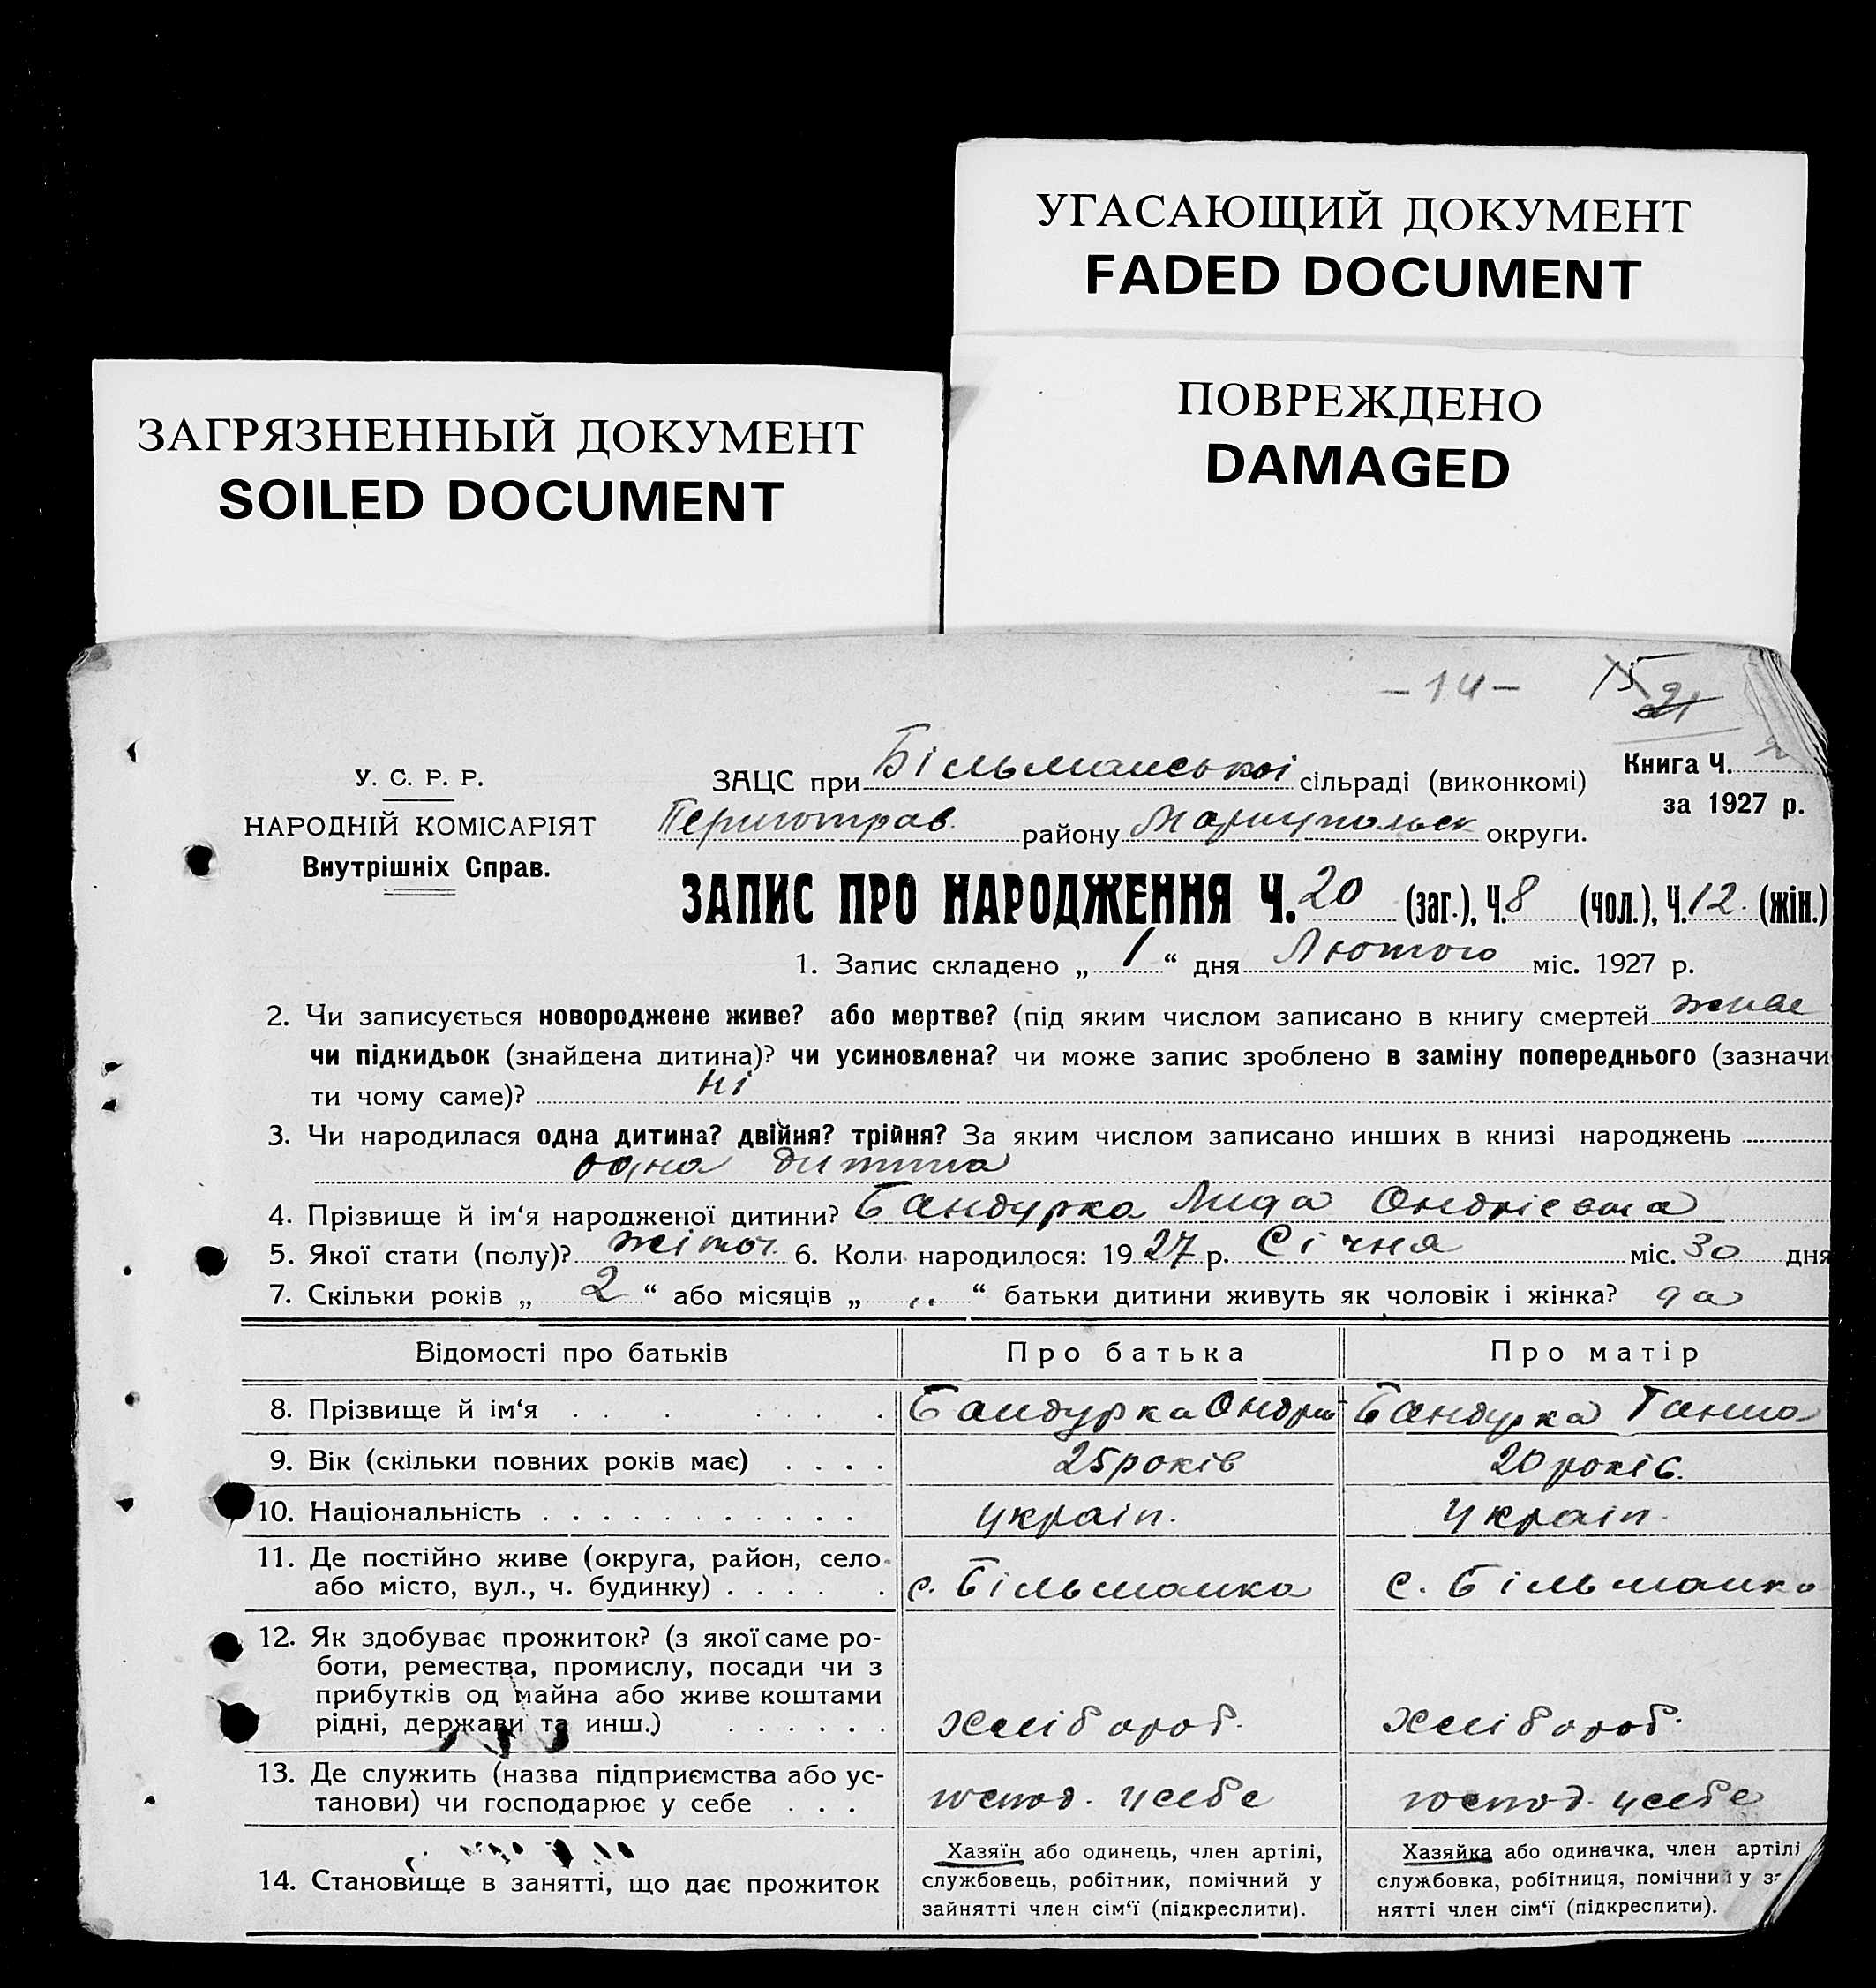 УГАСАЮЩИЙ ДОКУМЕНТ
FADED DOCUMENT
ПОВРЕЖДЕНО
DAMAGED
ЗАГРЯЗНЕННЫЙ ДОКУМЕНТ
SOILED DOCUMENT
– 14 – 15 21
У. С. Р. Р.
НАРОДНІЙ КОМІСАРІЯТ
Внутрішніх Справ.
Книга Ч.
за 1927 р.
ЗАЦС при Більманської сільраді (виконкомі)
району Маріупольськ округи.
ЗАПИС ПРО НАРОДЖЕННЯ Ч. 20 (заг.), Ч. 8 (чол.), Ч. 12. (жін.)
1. Запис складено „ 1 “ дня Лютого міс. 1927 р.
2. Чи записується новороджене живе? або мертве? (під яким числом записано в книгу смертей живе
чи підкидьок (знайдена дитина)? чи усиновлена? чи може запис зроблено в заміну попереднього (зазначи
ти чому саме)? ні
3. Чи народилася одна дитина? двійня? трійня? За яким числом записано инших в книзі народжень
одна дитина
4. Прізвище й ім‘я народженої дитини? Бандурка Лида Ондрієвна
5. Якої стати (полу)? жіноч. 6. Коли народилося: 19 27 р. Січня міс. 30 дня
7. Скільки років „ 2 “ або місяців „ „ “ батьки дитини живуть як чоловік і жінка? да
Відомості про батьків Про батька Про матір
8. Прізвище й ім‘я Бандурка Ондрій Бандурка Ганна
9. Вік (скільки повних років має) 25 років 20 років.
10. Національність україн. україн.
11. Де постійно живе (округа, район, село
або місто, вул., ч. будинку) с. Більманка с. Більманка
12. Як здобуває прожиток? (з якої саме ро-
боти, ремества, промислу, посади чи з
прибутків од майна або живе коштами
рідні, держави та инш.) хлібороб. хлібороб.
13. Де служить (назва підприємства або ус-
танови) чи господарює у себе господ. у себе господ. у себе
14. Становище в занятті, що дає прожиток
Хазяїн або одинець, член артілі,
службовець, робітник, помічний у
зайнятті член сім‘ї (підкреслити).
Хазяйка або одиначка, член артілі
службовка, робітниця, помічний у за
нятті член сім‘ї (підкреслити).